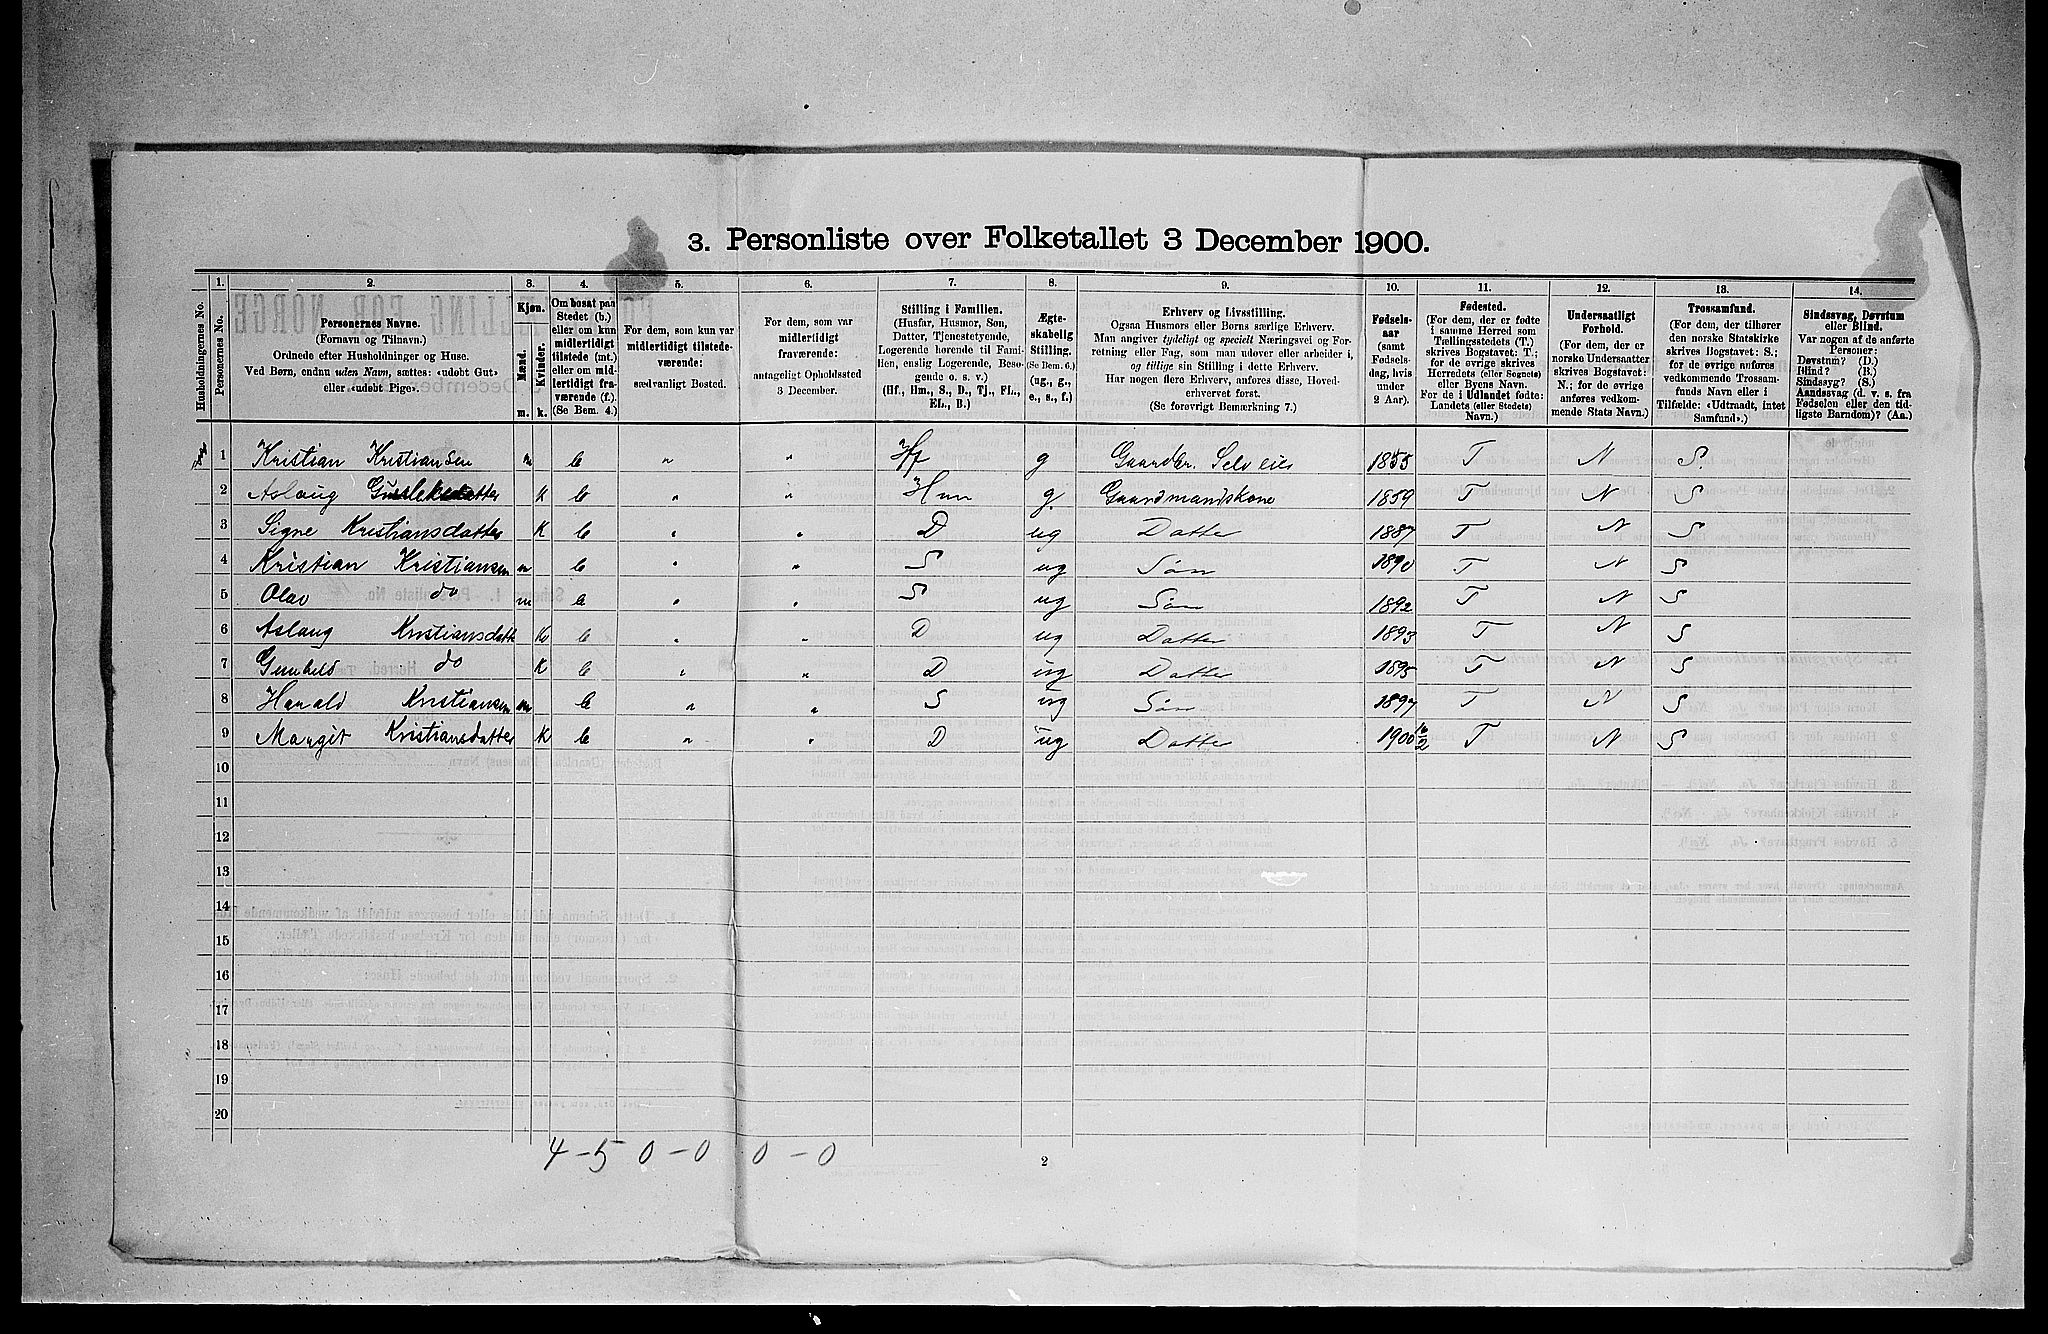 3. Personliste over Folketallet 3 December 1900.
1. 2. 3. 4. 5. 6. 7. 8. 9. 10. 11. 12. 13. 14.
Husholdningernes No.
Personernes No.
Personernes Navne.
(Fornavn og Tilnavn.)
Ordnede efter Husholdninger og Huse.
Ved Børn, endnu uden Navn, sættes: «udøbt Gut»
eller «udøbt Pige».
Kjøn.
Mænd.
Kvinder.
m. k.
Om bosat paa
Stedet (b.)
eller om kun
midlertidigt
tilstede (mt.)
eller om mid-
lertidigt fra-
værende (f.)
(Se Bem. 4.)
For dem, som kun var
midlertidigt tilstede-
værende:
sædvanligt Bosted.
For dem, som var
midlertidigt
fraværende:
antageligt Opholdssted
3 December.
Stilling i Familien.
(Husfar, Husmor, Søn,
Datter, Tjenestetyende,
Logerende hørende til Fami-
lien, enslig Logerende, Besø-
gende o. s. v.)
(Hf., Hm., S., D., Tj., FL.,
EL., B.)
Ægte-
skabelig
Stilling.
(Se Bem. 6.)
(ug., g.,
e., s., f.)
Erhverv og Livsstilling.
Ogsaa Husmors eller Børns særlige Erhverv.
Man angiver tydeligt og specielt Næringsvei og For-
retning eller Fag, som man udøver eller arbeider i,
og tillige sin Stilling i dette Erhverv.
Har nogen flere Erhverv, anføres disse, Hoved-
erhvervet først.
(Se forøvrigt Bemærkning 7.)
Fødsels-
aar
(samt
Fødsels-
dag, hvis
under
2 Aar).
Fødested.
(For dem, der er fødte
i samme Herred som
Tællingsstedets (T.)
skrives Bogstavet: T.;
for de øvrige skrives
Herredets (eller Sognets)
eller Byens Navn.
For de i Udlandet fødte:
Landets (eller Stedets)
Navn.)
Undersaatligt
Forhold.
(For dem, der er
norske Undersaatter
skrives Bogstavet:
N.; for de øvrige
anføres vedkom-
mende Stats Navn.)
Trossamfund.
(For dem, der tilhører
den norske Statskirke
skrives Bogstavet: S.;
for de øvrige anføres
vedkommende Trossam-
funds Navn eller i
Tilfælde: «Udtraadt, intet
Samfund».)
Sindssvag, Døvstum
eller Blind.
Var nogen af de anførte
Personer:
Døvstum? (D.)
Blind? (B.)
Sindssyg? (S.)
Aandssvag (d. v. s. fra
Fødselen eller den tid-
ligste Barndom)? (Aa.)
1 Kristian Kristiansen m b " " Hf g Gaardbr. Selveier 1855 T N S.
2 Aslaug k b " " Hm g. Gaardmandskone 1859 T N S
3 Signe Kristiansdatter k b " " D ug Datter 1887 T N S
4 Kristian Kristiansen m b " " S ug Søn 1890 T N S
5 Olav do m b " " S ug Søn 1892 T N S
6 Aslaug Kristiansdatt k b " " D ug Datter 1893 T N S
7 Gunhild do k b " " D ug Datter 1895 T N S
8 Harald Kristiansen m b " " S ug Søn 1897 T N S
9 Margit Kristiansdatter k b " " D ug Datter 1900 T N S
10
11
12
13
14
15
16
17
18
19
20
4-5 0-0 0-0
2